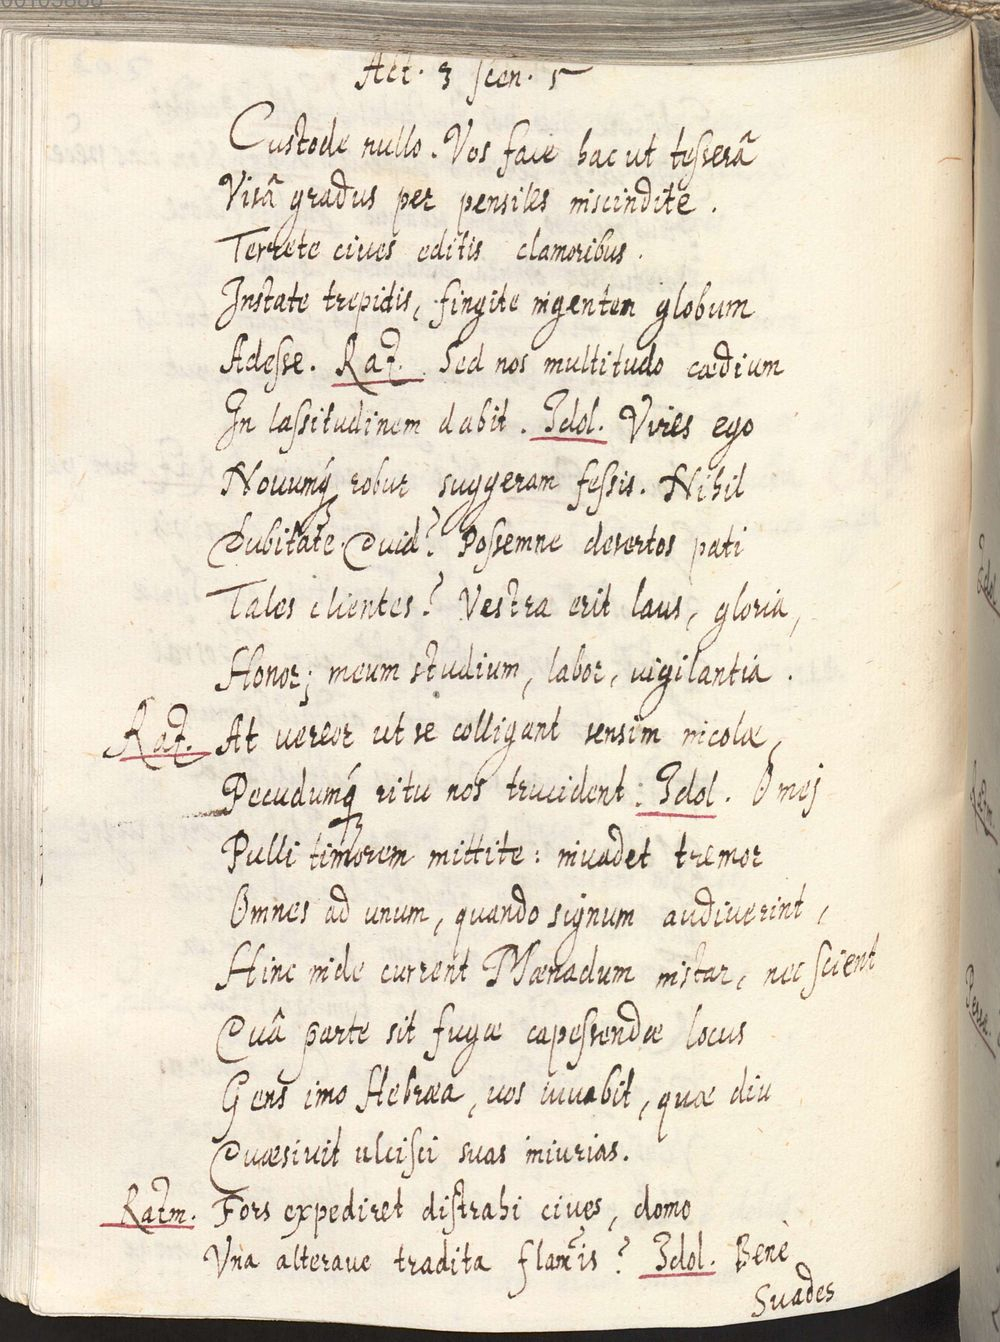 Act. 3 scen. 5
Custode nullo. Vos face hac ut tesserã
Visã gradus per pensiles inscindite.
Terrete cives editis clamoribus.
Instate trepidis, fingite ingentem globum
Adesse. Rat. Sed nos multitudo cædium
In lassitudinem dabit. Idol. Vires ego
Novumq́ robur suggeram fessis. Nihil
Dubitate. Quid? Possemne desertos pati
Tales clientes? Vestra erit laus, gloria,
Honor; meum studium, labor, vigilantia.
Rat. At vereor ut se colligant sensim incolæ,
Pecudumq́ ritu nos trucident: Idol. O mej
Pulli timorem mittite: invadet tremor
Omnes ad unum, quando signum audiverint,
Hinc inde current Mænadum instar, nec scient
Quâ parte sit fugæ capessendæ locus
Gens imo Hebræa, vos iuvabit, quæ diu
Quæsivit ulcisci suas iniurias.
Ratm. Fors expediret distrahi cives, domo
Vna alterave tradita flam̃is? Idol. Benè
Suades